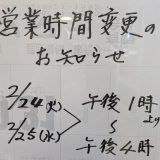 営業時間変更の
お知らせ
2/24(火) 午後1時より
2/25(水) 〜
午後4時